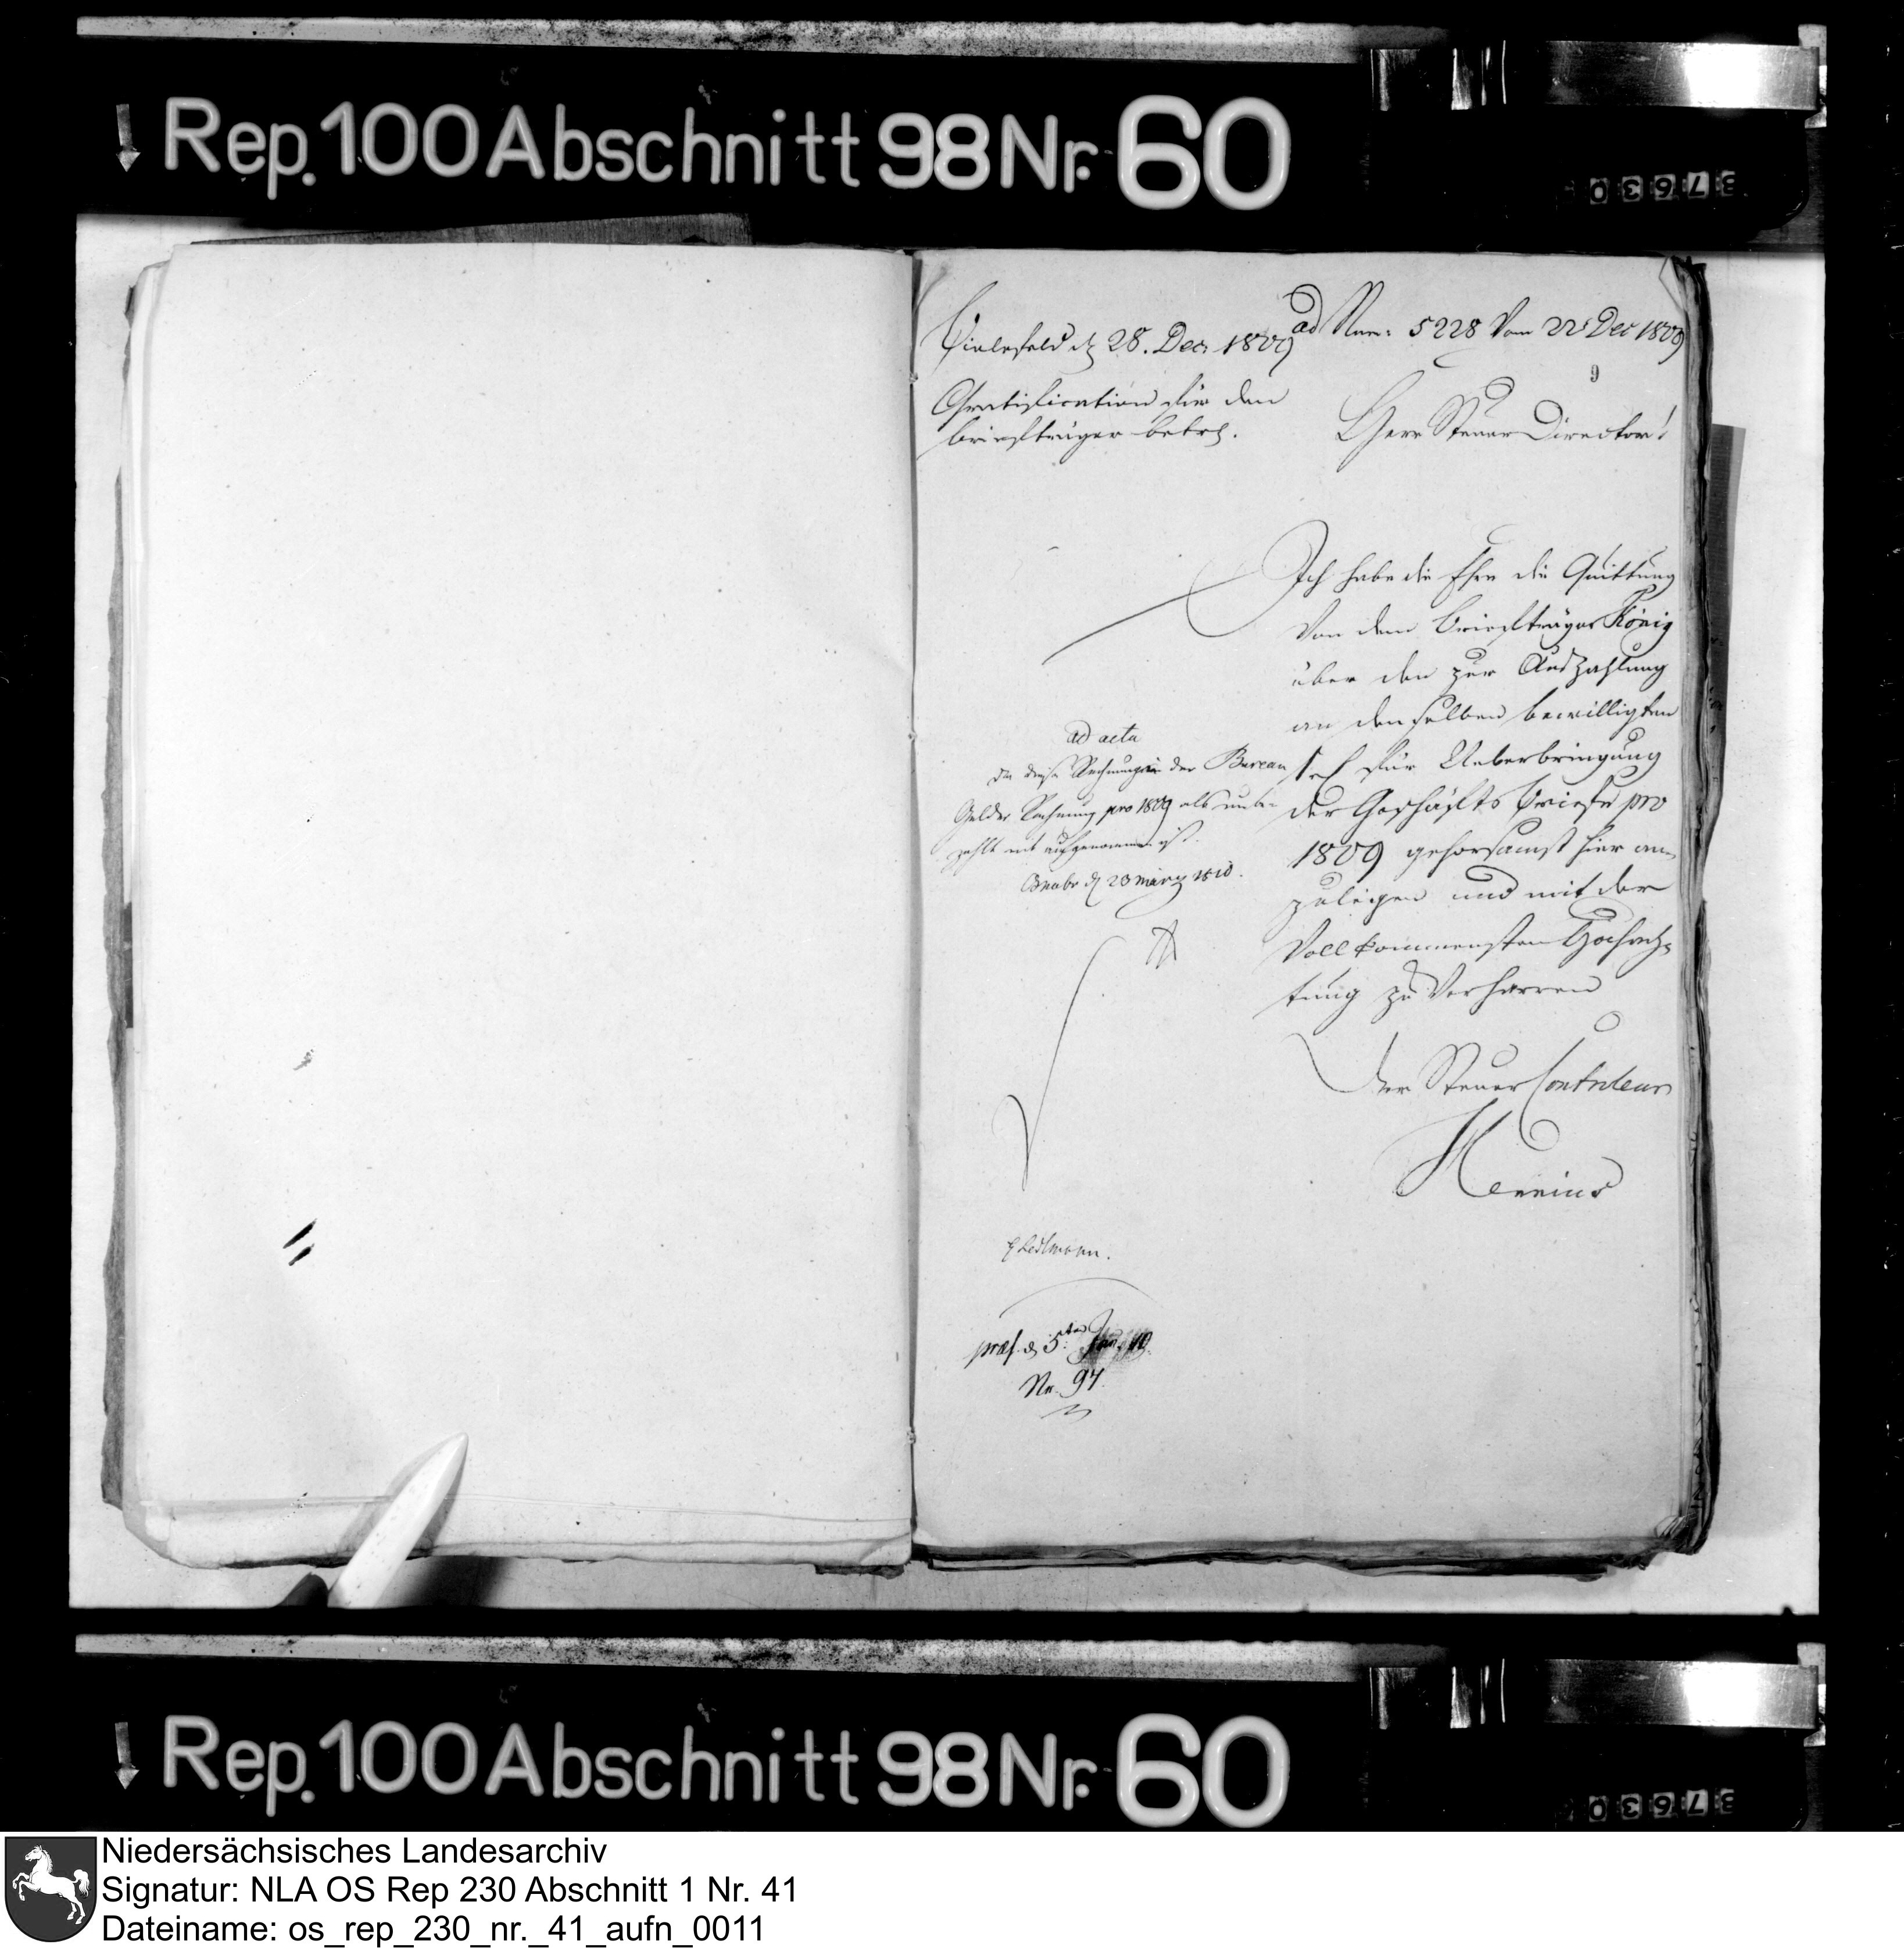 Rep. 100 Abschnitt 98 Nr. 60
37630
Bielefeld d 28. Dec. 1809
ad Num: 5228 Vom 22 Dec 1809
9
Gratification für den
Briefträger betrf.
Herr Steuer Director!
Ich habe die Ehre die Quittung
Von dem Briefträger König
über den zur Auszahlung
an denselben bewilligten
für Ueberbringung
der Geschäfts Briefe pro
1809 gehorsamst hier an-
zulegen und mit der
Vollkommensten Hochach-
tung zu Verharren
Der Steuer Controleur
ad acta
da diese Rechnung in der Bureau
Gelder Rechnung pro 1809 als unbe-
zahlt mit aufgenommen ist.
Osnabr d 28 März 1810.
præs. d 5ten Jan. 10.
Nr. 97
Rep. 100 Abschnitt 98 Nr. 60
37630
Niedersächsisches Landesarchiv
Signatur: NLA OS Rep 230 Abschnitt 1 Nr. 41
Dateiname: os_rep_230_nr._41_aufn_0011